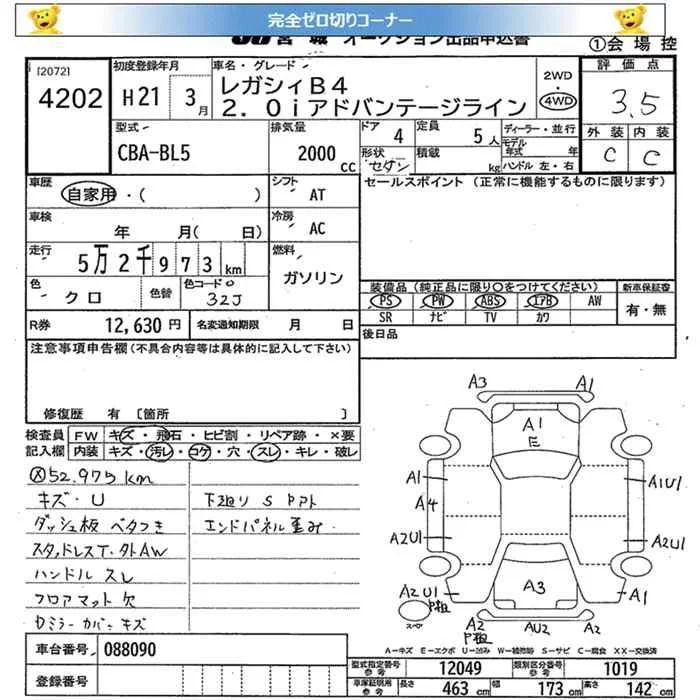 完全ゼロ切りコーナー
JU宮城 オークション出品申込書
①会場控
[2072]
4202
初度登録年月
H21 3月
車名・グレード
レガシィB4
2.0iアドバンテージライン
2WD
・
4WD
評価点
3.5
外装 内装
C C
型式
CBA-BL5
排気量
2000cc
ドア 4
形状 セダン
定員 5人
積載 kg
ディーラー・並行
モデル年式 年
ハンドル 左・右
車歴
自家用・( )
シフト
AT
セールスポイント (正常に機能するものに限ります)
車検
年 月( 日)
冷房
AC
走行
5万2千973km
燃料
ガソリン
色
クロ
色替
色コードNo
32J
装備品(純正品に限り○をつけてください)
新車保証書
PS PW ABS エアB AW
有・無
SR ナビ TV カワ
R券 12,630円
名変通知期限 月 日
後日品
注意事項申告欄(不具合内容等は具体的に記入して下さい)
修復歴 有 [箇所 ]
検査員記入欄
FW キズ・飛石・ヒビ割・リペア跡・×要
内装 キズ・汚レ・コゲ・穴・スレ・キレ・破レ
Ⓧ52.975km
キズ・U
ダッシュ板 ベタつき
スタッドレスT.外AW
ハンドル スレ
フロアマット欠
ミラーカバーキズ
下廻り S
エンドパネル歪み
A3 A1
A1
E
A1 A1U1
A4
A2U1 A2U1
A2U1 A3 A1
スペア
A2 AU2 A2
A=キズ E=エクボ U=凹み W=補修跡 S=サビ C=腐食 XX=交換済
車台番号 088090
登録番号
型式指定番号参考 12049
類別区分番号参考 1019
車庫証明用参考 長さ 463cm 幅 173cm 高さ 142cm